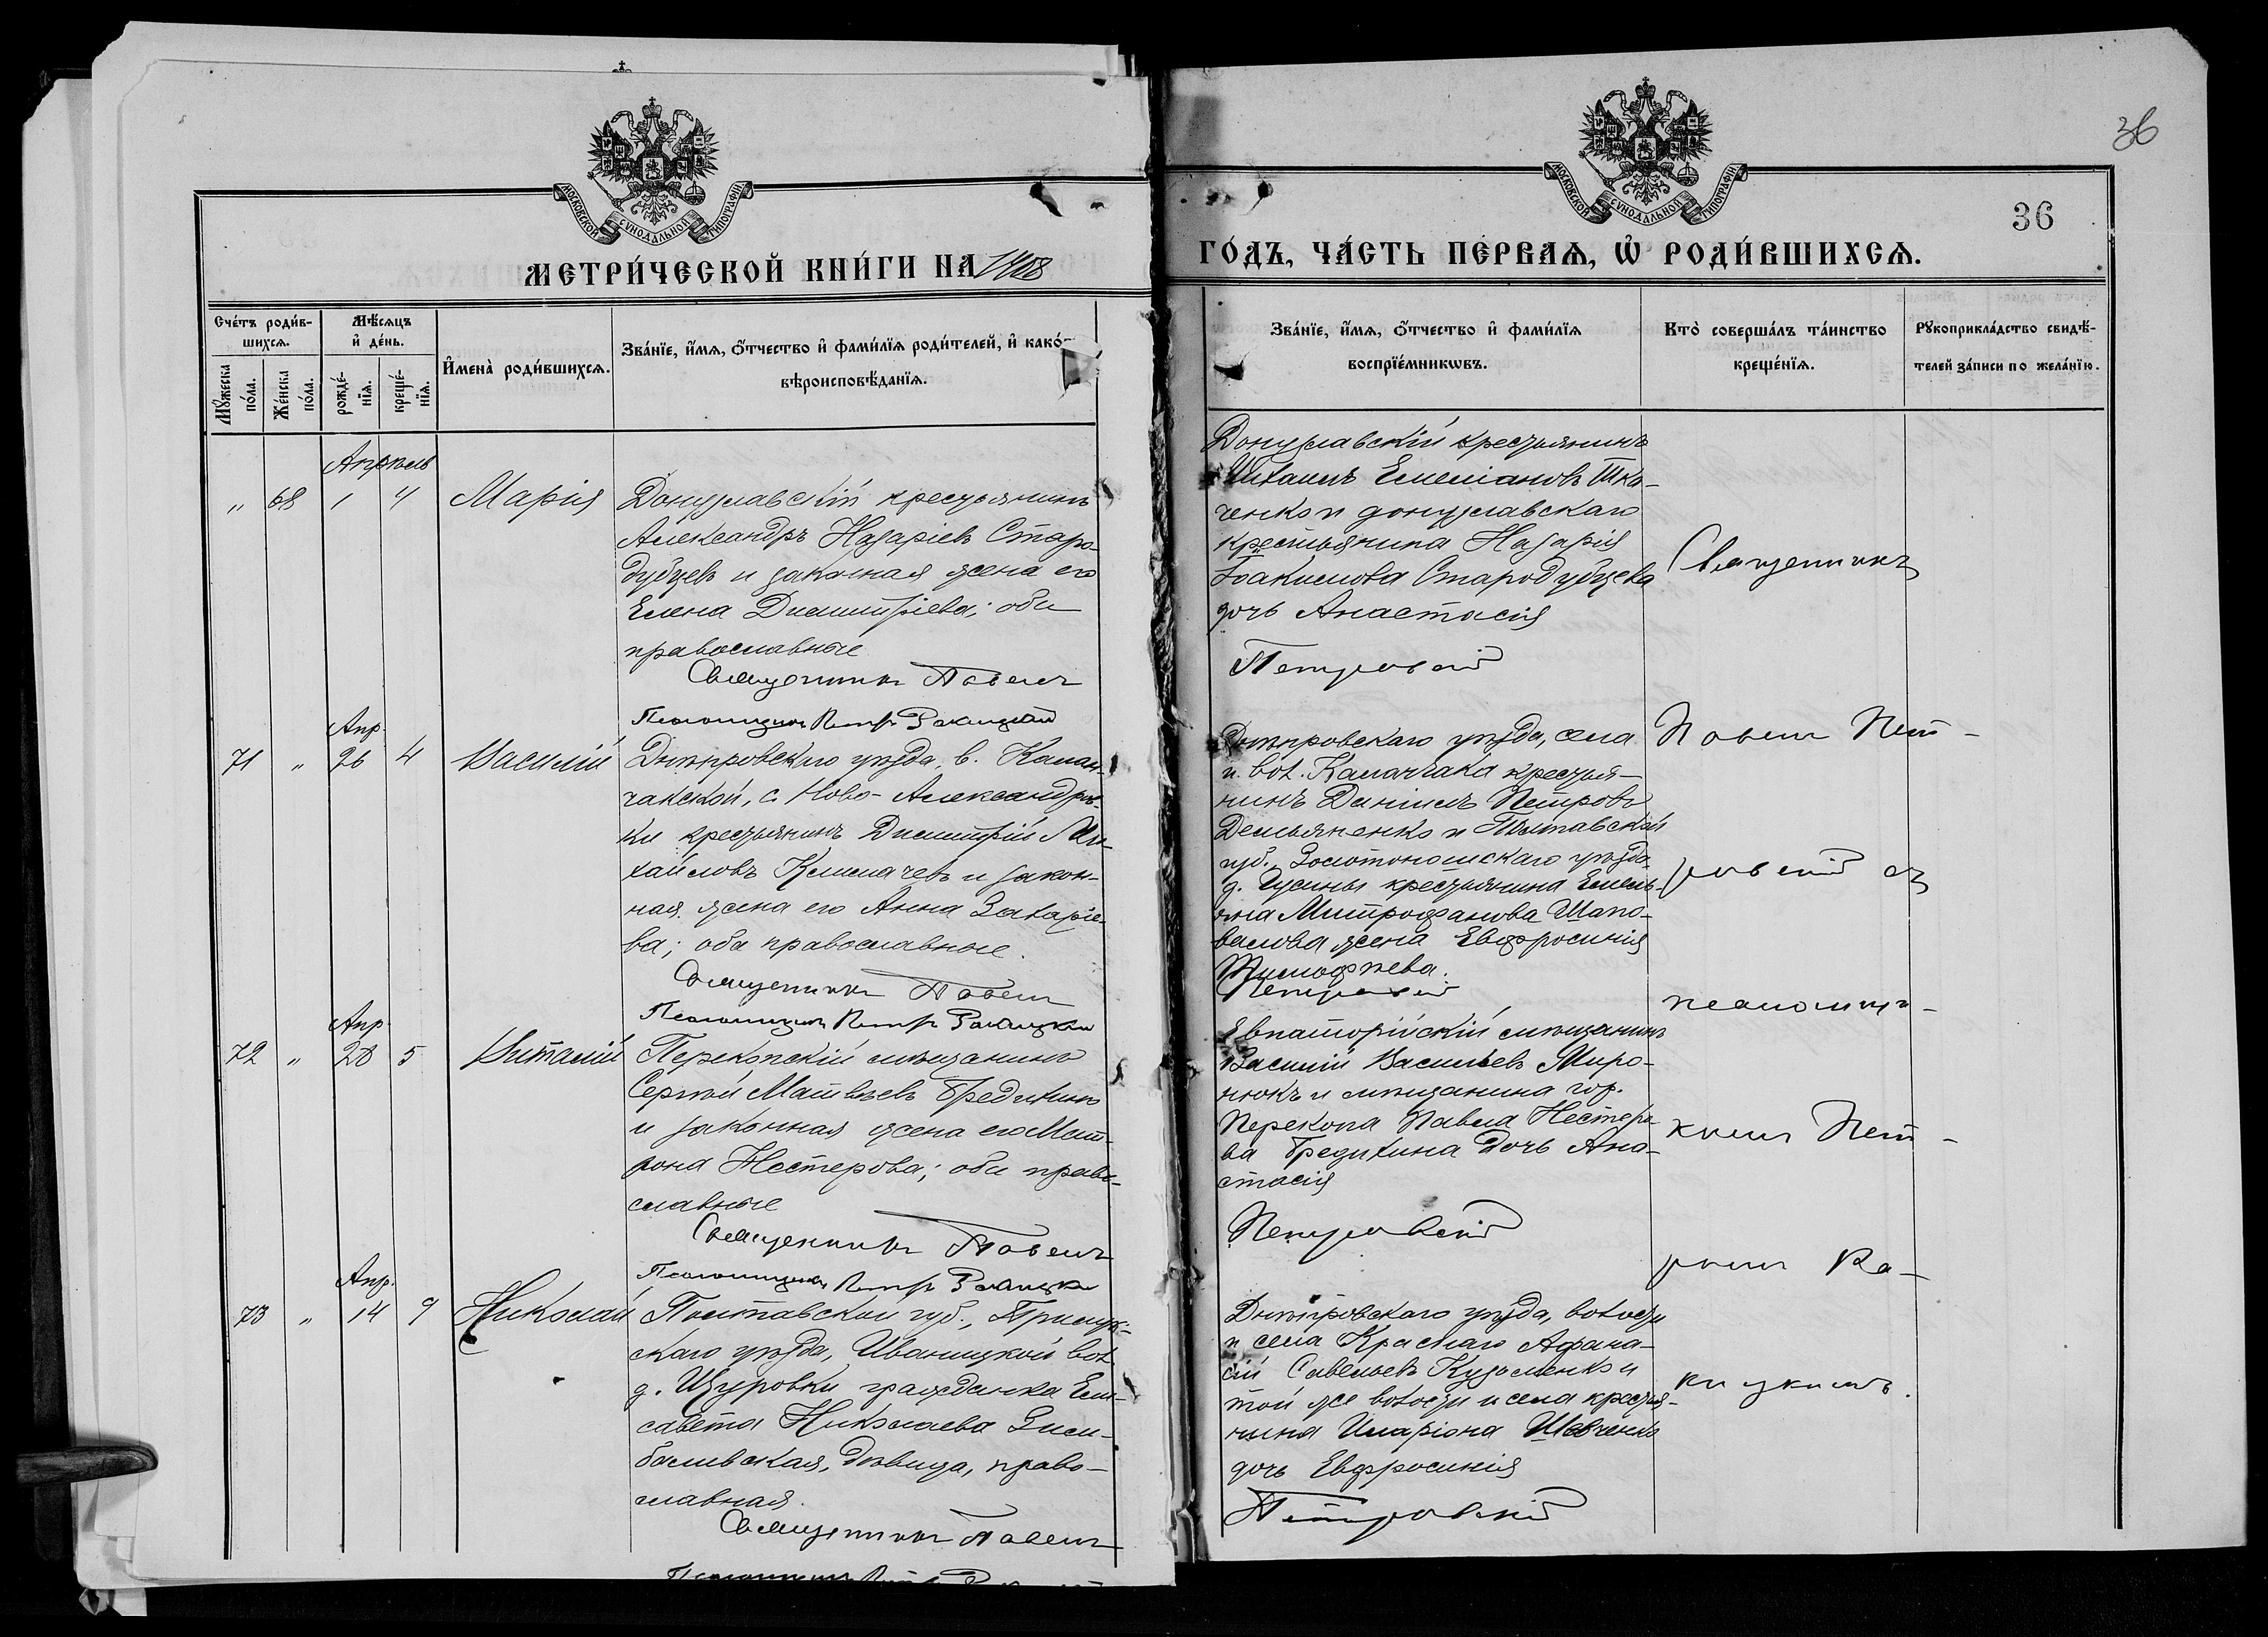 36
МОСКОВСКОЙ СУНОДАЛЬНОЙ ТИПОГРАФІИ
МОСКОВСКОЙ СУНОДАЛЬНОЙ ТИПОГРАФІИ
36
МЕТРИ́ЧЕСКОЙ КНИ́ГИ НА 1908
ГО́ДЪ, ЧА́СТЬ ПЕ́РВАѦ, Ѡ҆ РОДИ́ВШИХСѦ.
Сче́тъ роди́в-
шихсѧ.
Мꙋ́жеска по́ла.
Же́нска по́ла.
Мѣ́сѧцъ
и҆ де́нь.
рожде́-
нїѧ.
креще́-
нїѧ.
И҆мена̀ роди́вшихсѧ.
Зва́нїе, и҆́мѧ, ѻ҆́тчество и҆ фами́лїѧ роди́телей, и҆ како́-
вѣроисповѣ́данїѧ.
Зва́нїе, и҆́мѧ, ѻ҆́тчество и҆ фами́лїѧ
воспрїе́мникѡвъ.
Кто̀ соверша́лъ та́инство
креще́нїѧ.
Рꙋкоприкла́дство свидѣ́-
телей за́писи по жела́нїю.
Апрѣль
" 68 1 4 Марія
Донузлавскій крестьянинъ
Александръ Назаріевъ Старо-
дубцевъ и законная жена его
Елена Димитріева; оба
православные
Священникъ Павелъ
Псаломщикъ Петръ Ракицкій
Донузлавскій крестьянинъ
Михаилъ Емеліановъ Тка-
ченко и донузлавскаго
крестьянина Назарія
Іоакимова Стародубцева
дочь Анастасія
Петровскій
Апр.
71 " 26 4 Василій
Днѣпровскаго уѣзда, в. Калан-
чакской, с. Ново-Александров-
ки крестьянинъ Димитрій Ми-
хайловъ Климачевъ и закон-
ная жена его Анна Захаріе-
ва; оба православные.
Священникъ Павелъ
Псаломщикъ Петръ Ракицкій
Днѣпровскаго уѣзда, села
и вол. Каланчака крестья-
нинъ Даніилъ Петровъ
Демьяненко и Полтавской
губ. Золотоношскаго уѣзда
д. крестьянина Емель-
яна Митрофанова Шапо-
валова жена Евфросинія
Тимофѣева.
Петровскій
Апр.
72 " 28 5 Виталій
Перекопскій мѣщанинъ
Сергѣй Матвѣевъ Бредихинъ
и законная жена его Мат-
рона Нестерова; оба право-
славные
Священникъ Павелъ
Псаломщикъ Петръ Ракицкій
Евпаторійскій мѣщанинъ
Василій Васильевъ Миро-
нюкъ и мѣщанина гор.
Перекопа Павла Нестеро-
ва Бредихина дочь Ана-
стасія
Петровскій
Апр.
73 " 14 9 Николай
Полтавской губ., Прилук-
скаго уѣзда, Иваницкой вол.
д. Щуровки гражданка Ели-
савета Николаева
дѣвица, право-
славная.
Священникъ Павелъ
Псаломщикъ Петръ
Днѣпровскаго уѣзда, волости
и села Краснаго Афана-
сій Савельевъ Кузьменко и
той же волости и села крестья-
нина Иларіона Шевченко
дочь Евфросинія
Петровскій
Священникъ
Павелъ Пет-
ровскій съ
псаломщи-
комъ Пет-
ромъ Ра-
кицкимъ.